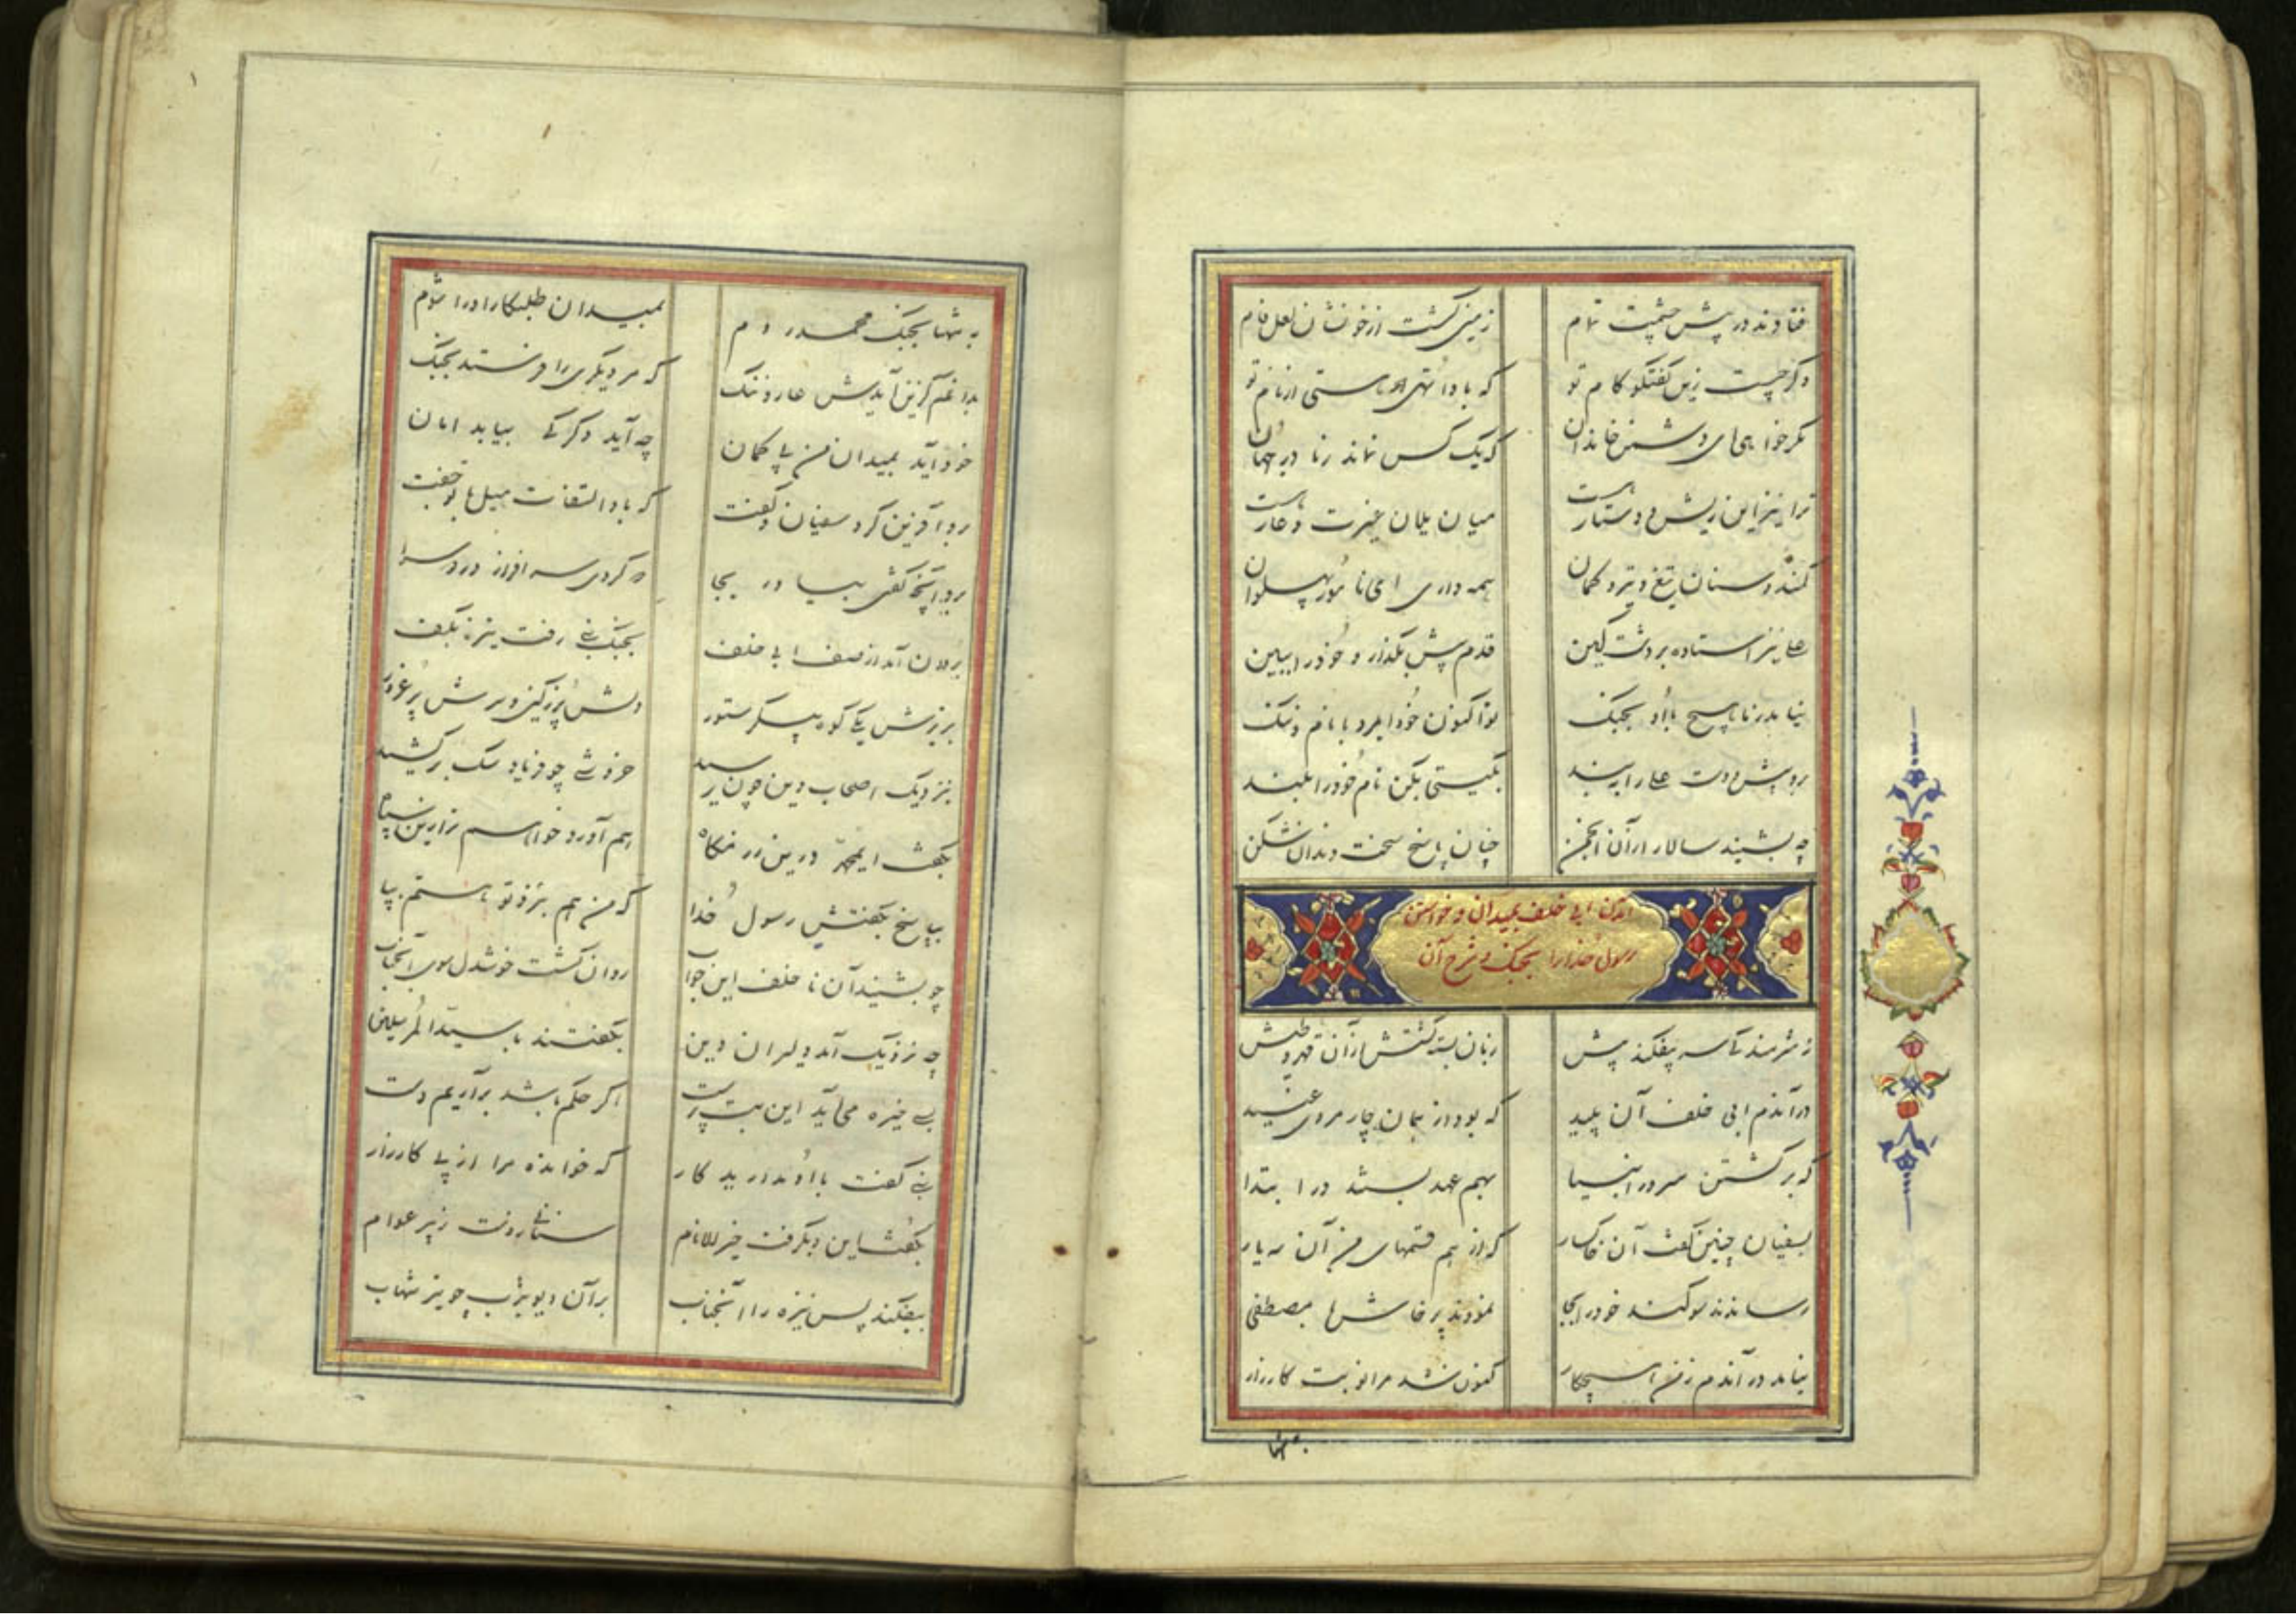 فتادند در پیش چشمت تمام زمین گشت از خونشان لعل فام
دگر چیست زین گفتگو کام تو که بادا تهی هستی از نام تو
مگر خواهی ای دشمن خاندان که یک کس نماند ز ما در جهان
ترا نیز این ریش و دستار هست میان یلان غیرت و عار هست
کمند و سنان تیغ و تیر و کمان همه داری ای نامور پهلوان
علی نیز استاده بر دشت کین قدم پیش بگذار و خود را ببین
نیاید ز ما هیچ با او بجنگ تو اکنون خود ایمرد با نام و ننگ
برو پیش و دست علی را ببند بگیتی بکن نام خود را بلند
چه بشنید سالار از آن انجمن چنان پاسخ سخت دندان شکن
آمدن ابی خلف بمیدان و خواستن
رسول خدا را بجنگ و شرح آن
ز شرمندگی سر بیفکند پیش زبان بسته گشتش از آن
درآندم ابی خلف آن پلید که بود از همان چار مرد عنید
که بر کشتن سرور انبیا بهم عهد بستند در ابتدا
بسفیان چنین گفت آن خاکسار که از هم قسمهای من آن سه یار
رساندند سوگند خود را بجا نمودند پرخاش با مصطفی
نیامد در آندم ز من هیچکار کنون شد مرا نوبت کارزار
به تنها
به تنها بجنگ محمد روم بمیدان طلبکار او را شوم
بداغم کزین آیدش عار و ننگ که مر دیگری را فرستد بجنگ
خود آید بمیدان من بی کمان چه آید دگر کی بیابد امان
برو آفرین کرد سفیان و گفت که بادا التفات هبل با تو جفت
برو آنچه گفتی بیاور بجا که کردی سرافراز در دو سرا
برون آمد از صف ابی خلف بجنگ نبی رفت نیزه بکف
بزیرش یکی کوه پیکر ستور دلش پر ز کین و سرش پر غرور
بنزدیک اصحاب دین چون رسید خروشی چو فریاد سگ برکشید
بگفت ای محمد درین رزمگاه هم آورد خواهم ترا زین سپاه
بپاسخ بگفتش رسول خدا که من هم بنزد تو هستم بپا
چو بشنید آن ناخلف این جواب روان گشت خوشدل سوی آنجناب
چه نزدیک آمد دلیران دین بگفتند با سید المرسلین
بسی خیره می‌آید این بت پرست اگر حکم باشد برآریم دست
نبی گفت با او ندارید کار که خوانده مرا از پی کارزار
بگفت این و بگرفت خیر الانام سنانی ز دست زبیر عوام
بیفکند پس نیزه را آنجناب بر آن دیو یثرب چو تیر شهاب